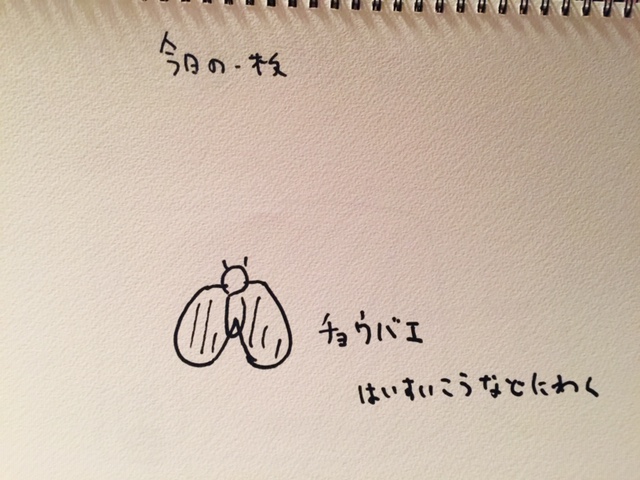 今日の一枚
チョウバエ
はいすいこうなどにわく